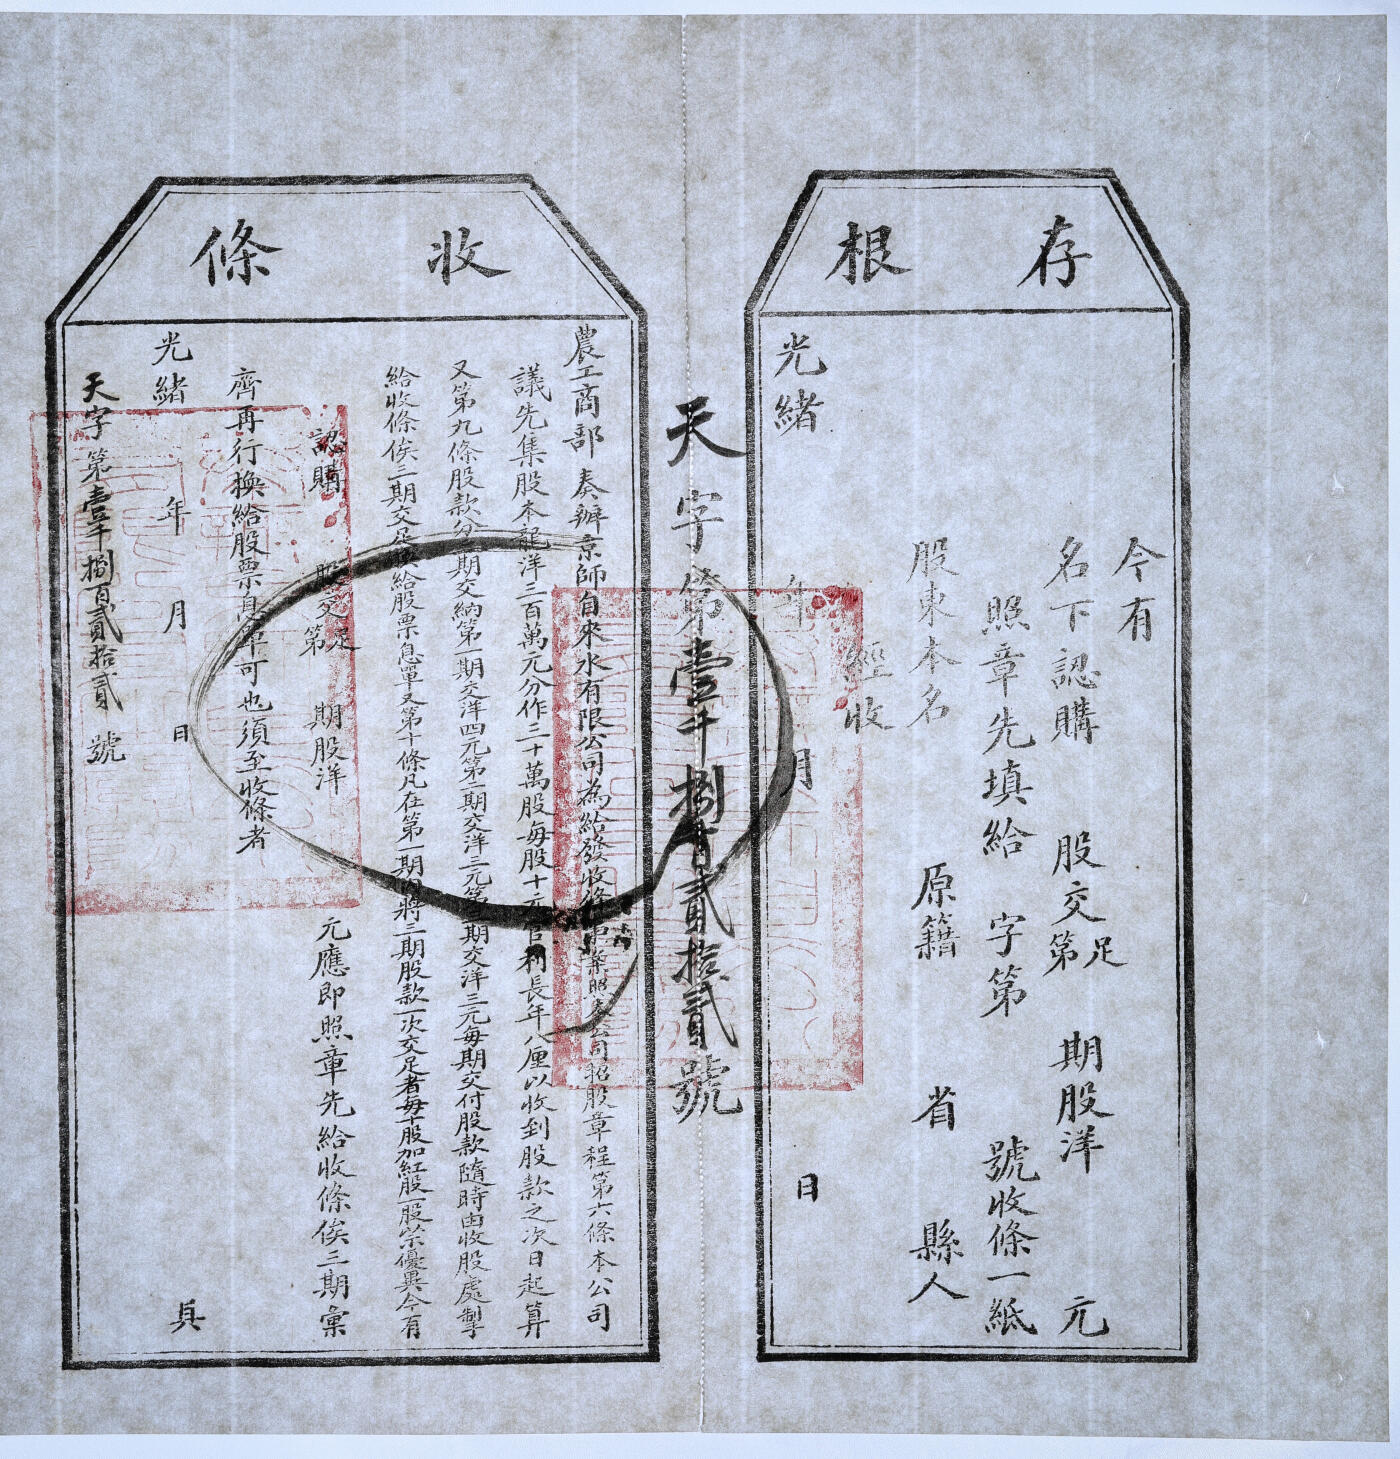 存根
今有
名下認購 股交足第 期股洋 元
照章先填給 字第 號收條一紙
股東本名 原籍 省 縣人
經收
光緒 年 月 日
天字第壹千捌百貳拾貳號
收條
農工商部奏辦京師自來水有限公司為給發收條事案照本公司招股章程第六條本公司
議先集股本龍洋三百萬元分作三十萬股每股十元官利長年八厘以收到股款之次日起算
又第九條股款分三期交納第一期交洋四元第二期交洋三元第三期交洋三元每期交付股款隨時由收股處掣
給收條俟三期交足換給股票息單又第十條凡在第一期內將三期股款一次交足者每十股加紅股一股以示優異今有
認購 股交足第 期股洋 元應即照章先給收條俟三期彙
齊再行換給股票息單可也須至收條者
光緒 年 月 日 具
天字第壹千捌百貳拾貳號